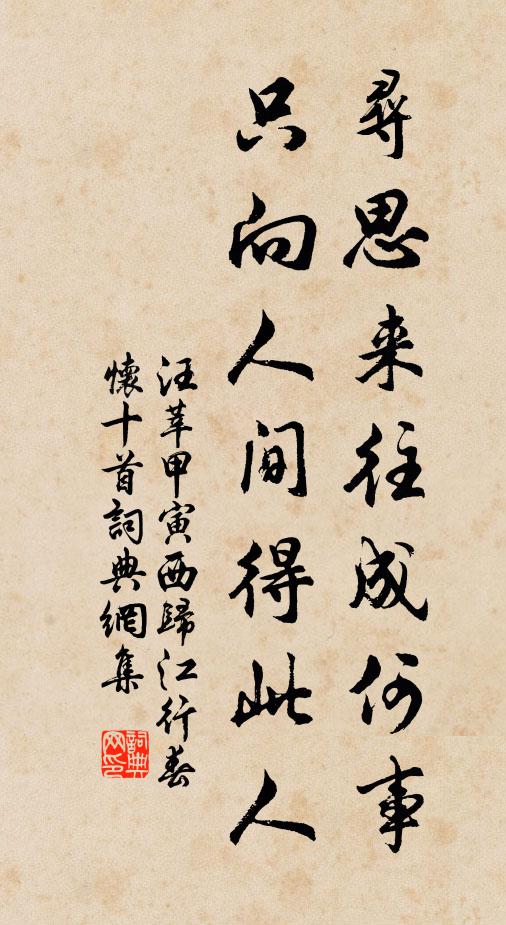 尋思来往成何事
只向人間得此人
汪莘甲寅西歸江行春
懷十首詞典網集
詞典网印